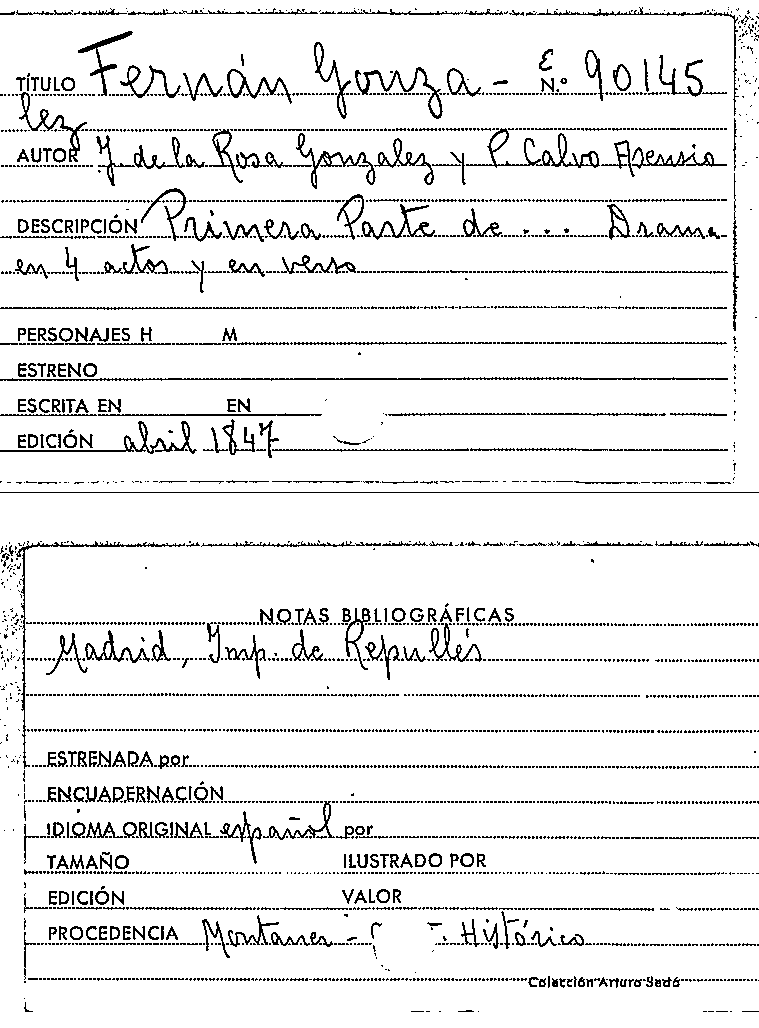 TÍTULO Fernán Gonza- E N.º 90145
lez
AUTOR J. de la Rosa Gonzalez y P. Calvo Asensio
DESCRIPCIÓN Primera Parte de ... Drama
en 4 actos y en verso
PERSONAJES H M
ESTRENO
ESCRITA EN EN
EDICIÓN abril 1847
NOTAS BIBLIOGRÁFICAS
Madrid, Imp. de Repullés
ESTRENADA por
ENCUADERNACIÓN
IDIOMA ORIGINAL español por
TAMAÑO ILUSTRADO POR
EDICIÓN VALOR
PROCEDENCIA Montaner - Histórico
Colección Arturo Sedó